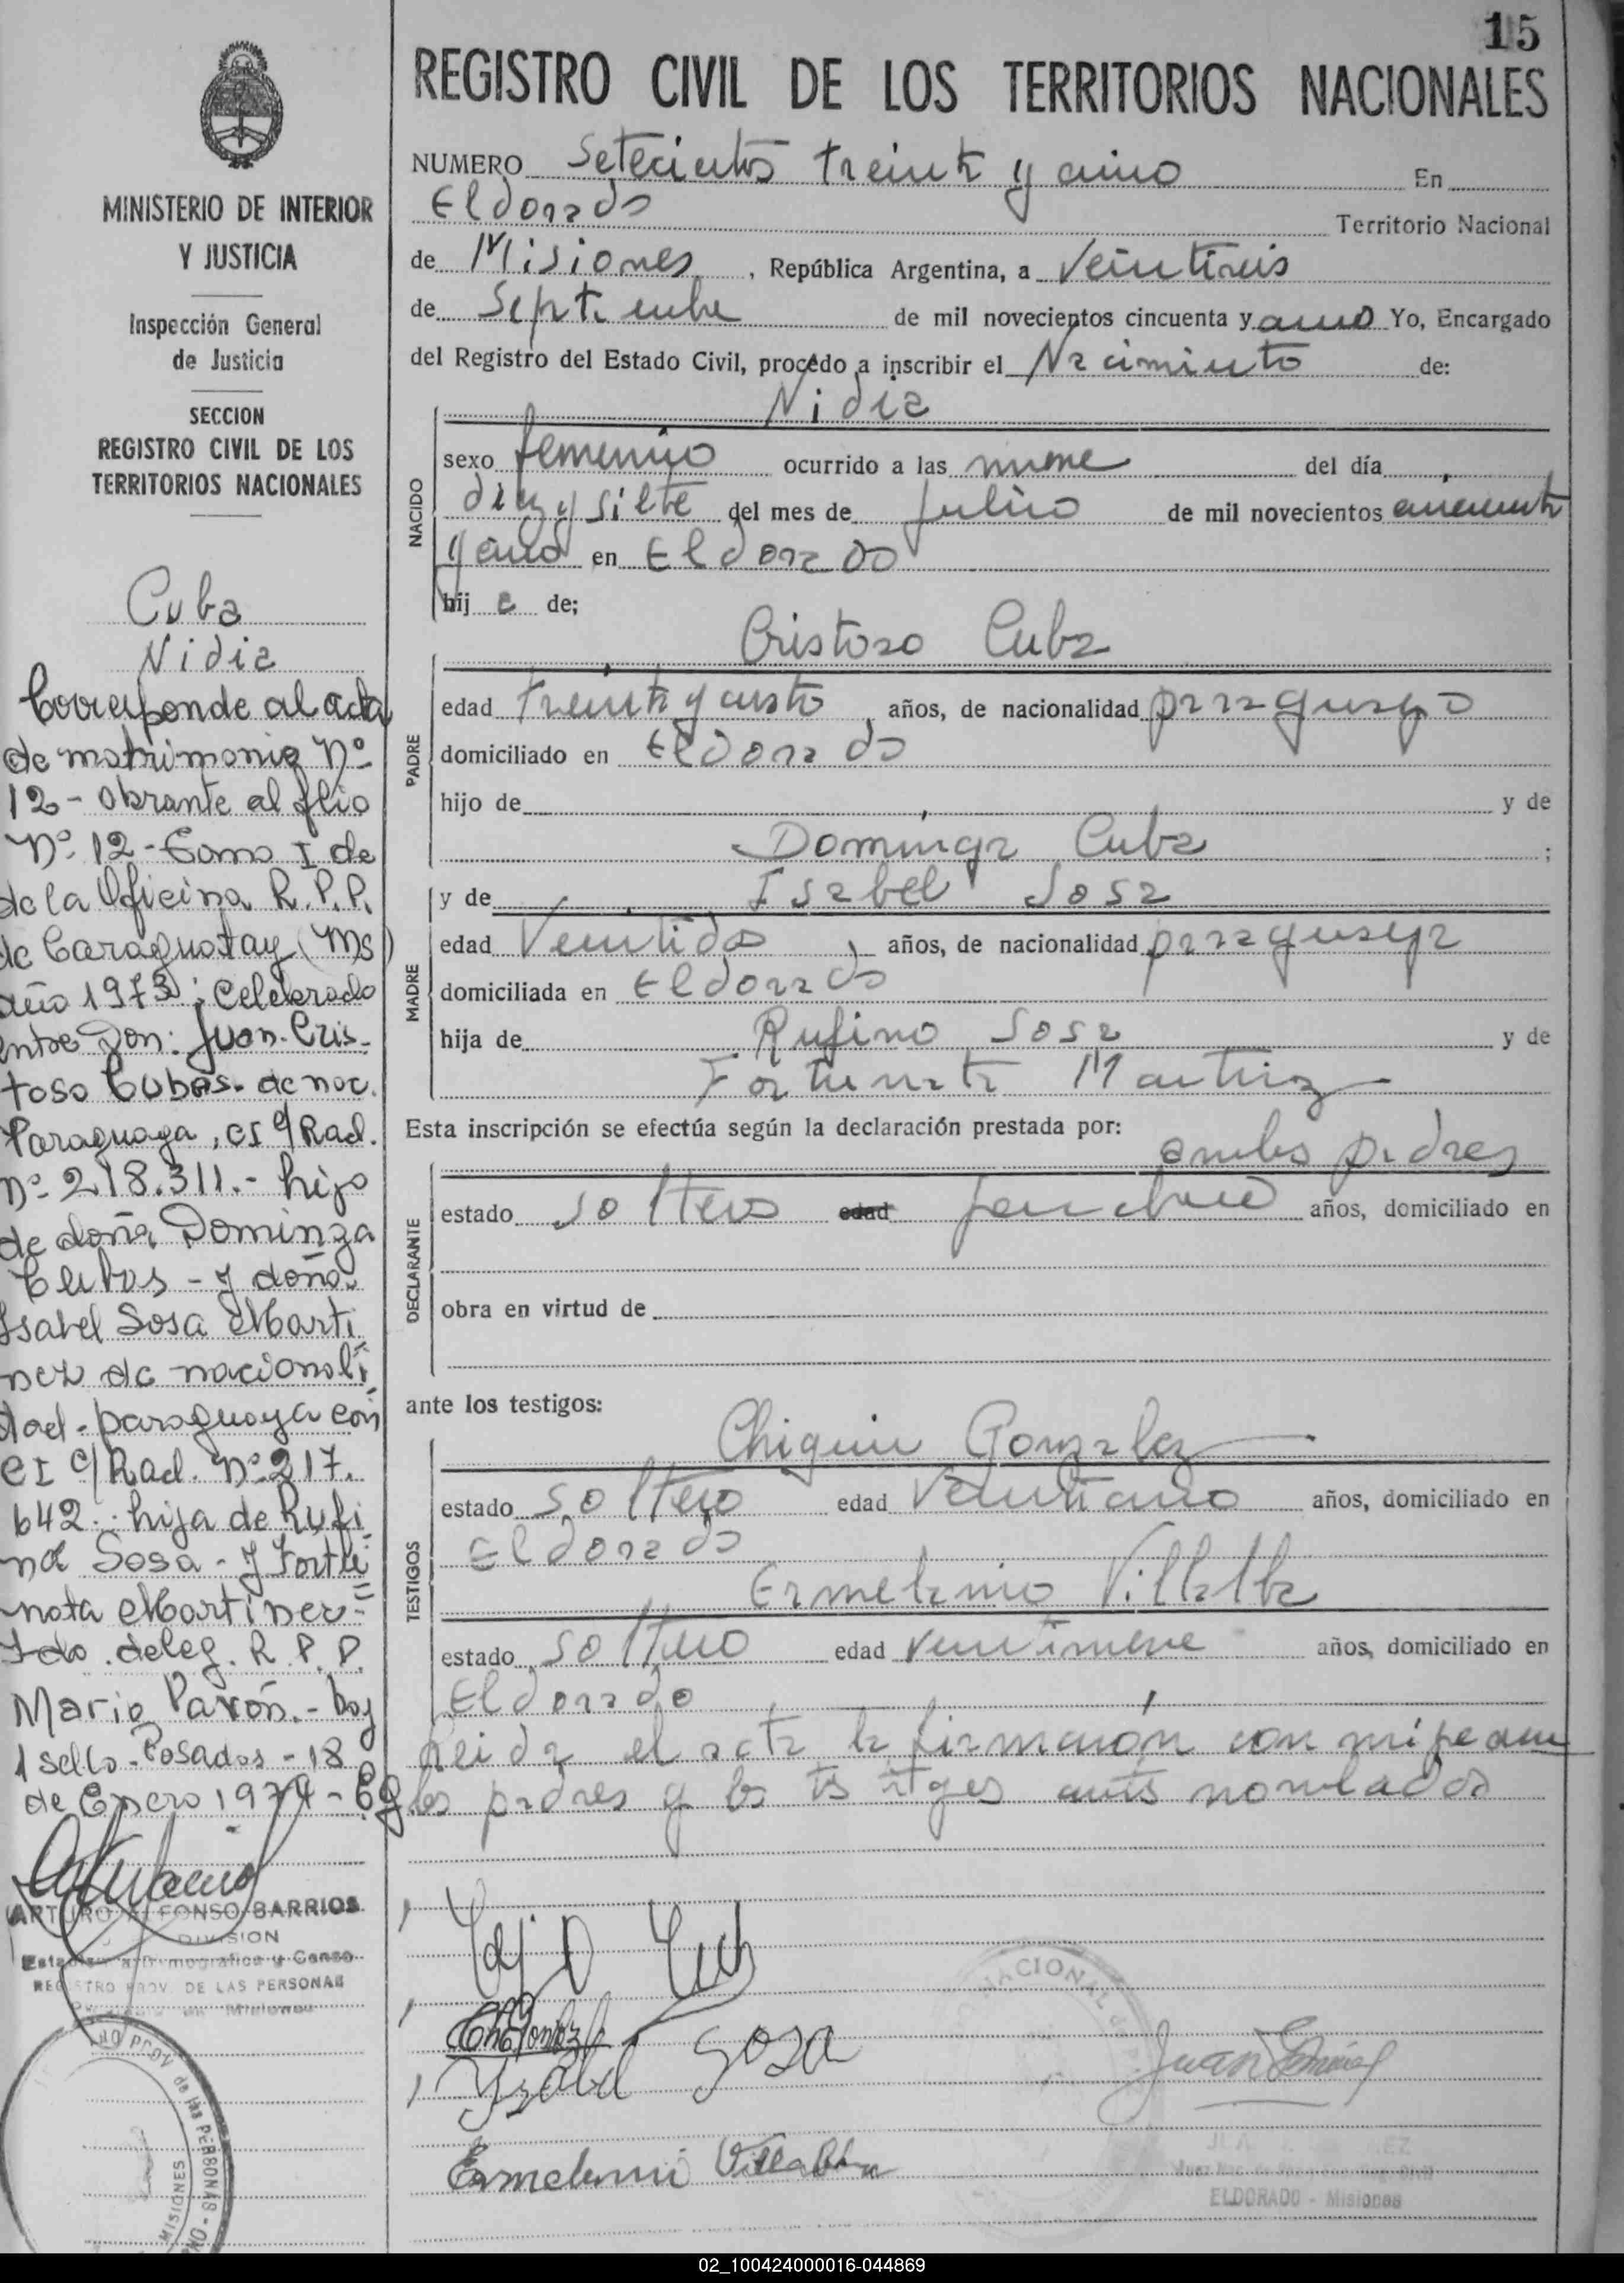 15
MINISTERIO DE INTERIOR
Y JUSTICIA
Inspección General
de Justicia
SECCION
REGISTRO CIVIL DE LOS
TERRITORIOS NACIONALES
Cuba
Nidia
Corresponde al acta
de matrimonio Nº
12 - obrante al flio
Nº 12 - Tomo I de
de la Oficina R. P. P.
de Caraguatay (Ms)
año 1973; Celebrado
entre Don: Juan Cris-
toso Cubas. de nac.
Paraguaya, CI c/ Rad.
Nº 218.311.- hijo
de doña Dominga
Cubas - y doña.
Isabel Sosa Marti
nez de nacionali
dad - paraguaya con
CI c/ Rad. Nº 217.
642.. hija de Rufi
no Sosa - y Fortu
nata Martinez =
Fdo. deleg. R. P. P.
Mario Pavón. - hay
1 sello - Posadas - 18
de Enero 1974 -
ARTURO ALFONSO BARRIOS
DIVISION
REGISTRO PROV. DE LAS PERSONAS
REGISTRO CIVIL DE LOS TERRITORIOS NACIONALES
NUMERO Setecientos treinta y cinco En
Eldorado Territorio Nacional
de Misiones, República Argentina, a Veintiseis
de Septiembre de mil novecientos cincuenta y uno Yo, Encargado
del Registro del Estado Civil, procedo a inscribir el Nacimiento de:
Nidia
NACIDO
sexo femenino ocurrido a las nueve del día
diez y siete del mes de Julio de mil novecientos cincuenta
y uno en Eldorado
hij a de;
Cristoso Cuba
PADRE
edad treinta y cuatro años, de nacionalidad paraguayo
domiciliado en Eldorado
hijo de y de
Dominga Cuba ;
y de Isabel Sosa
MADRE
edad Veintidos, años, de nacionalidad paraguaya
domiciliada en Eldorado
hija de Rufino Sosa y de
Fortunata Martinez
Esta inscripción se efectúa según la declaración prestada por:
ambos padres
DECLARANTE
estado solteros edad años, domiciliado en
obra en virtud de
ante los testigos:
Chiquin Gonzalez
TESTIGOS
estado soltero edad Veinticinco años, domiciliado en
Eldorado
Ermelinio Villalba
estado soltero edad veintinueve años, domiciliado en
Eldorado
Leida el acta la firmaron con migo
los padres y los testigos antes nombrados
Ysabel Sosa
Juan
Ermelinni Villalba
ELDORADO - Misiones
02_100424000016-044869